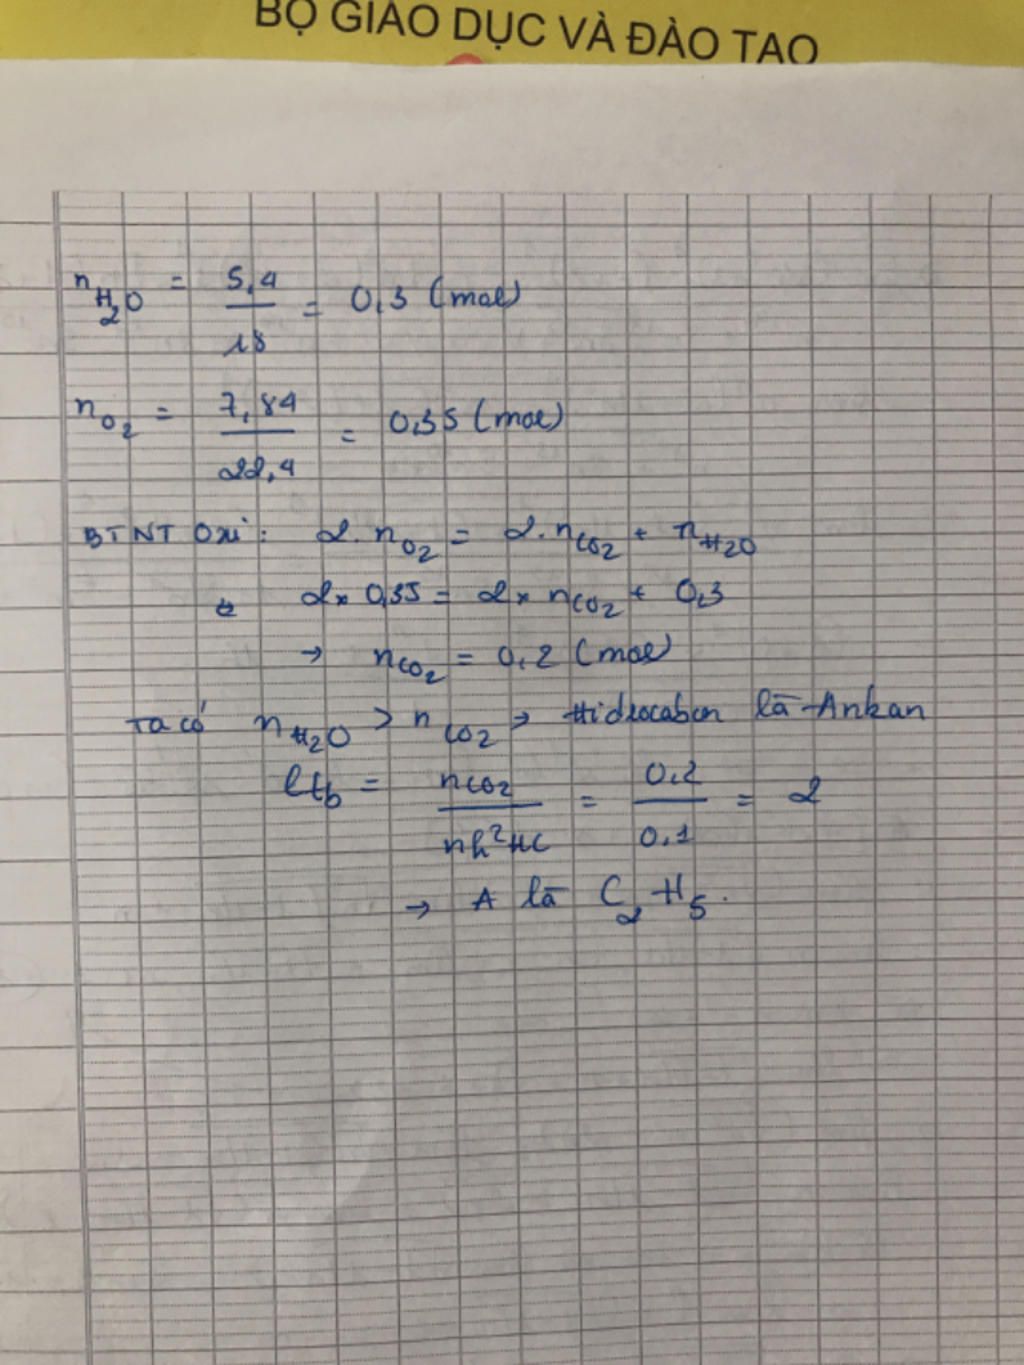 BỘ GIÁO DỤC VÀ ĐÀO TẠO
n H2O = 5,4 / 18 = 0,3 (mol)
n O2 = 7,84 / 22,4 = 0,35 (mol)
BTNT Oxi: 2. nO2 = 2. nCO2 + nH2O
2 x 0,35 = 2 x nCO2 + 0,3
→ nCO2 = 0,2 (mol)
Ta có nH2O > nCO2 → Hidrocabon là Ankan
Ctb = nCO2 / nh2HC = 0,2 / 0,1 = 2
→ A là C2H5.